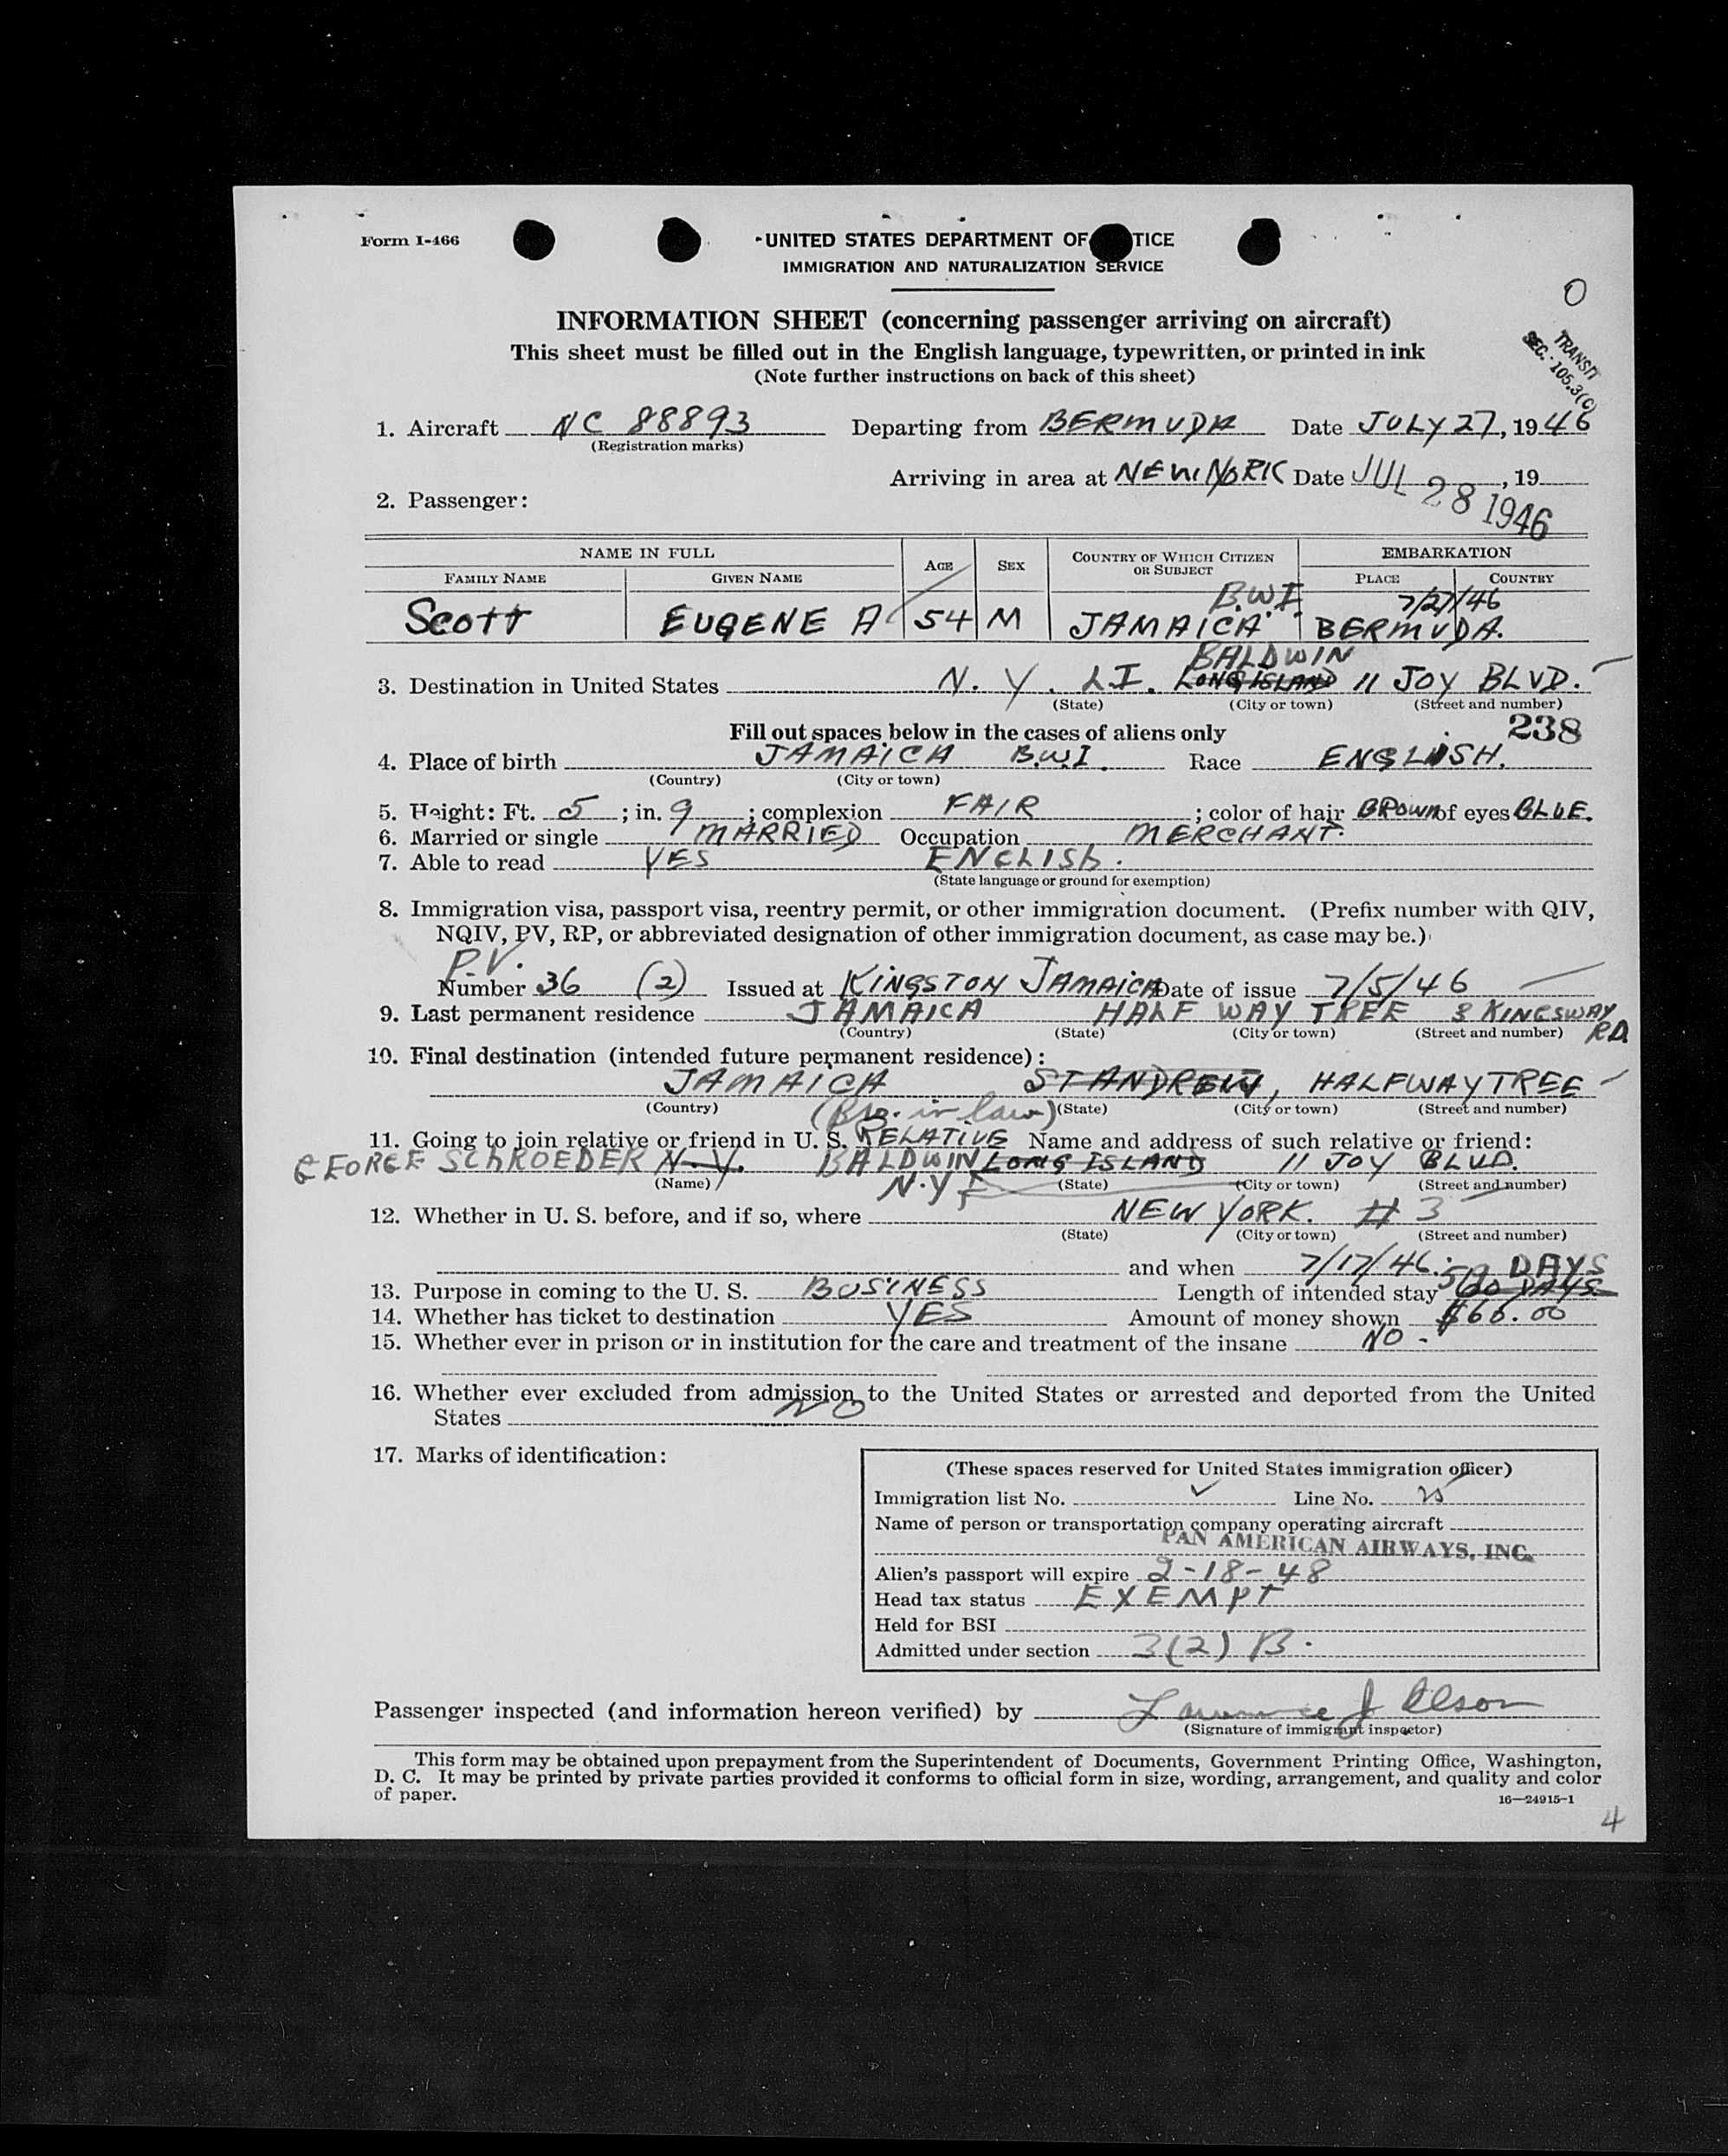 Form I-466
UNITED STATES DEPARTMENT OF TICE
IMMIGRATION AND NATURALIZATION SERVICE
O
INFORMATION SHEET (concerning passenger arriving on aircraft)
This sheet must be filled out in the English language, typewritten, or printed in ink
(Note further instructions on back of this sheet)
TRANSIT
SEC. 105.3(C)
1. Aircraft NC 88893 Departing from BERMUDA Date JULY 27, 1946
(Registration marks)
Arriving in area at NEW YORK Date JUL 28 1946, 19
2. Passenger:
NAME IN FULL AGE SEX COUNTRY OF WHICH CITIZEN OR SUBJECT EMBARKATION
FAMILY NAME GIVEN NAME PLACE COUNTRY
B.W.I 7/27/46
SCOTT EUGENE A 54 M JAMAICA BERMUDA.
BALDWIN
3. Destination in United States N.Y. L.I. LONG ISLAND 11 JOY BLVD.
(State) (City or town) (Street and number)
Fill out spaces below in the cases of aliens only 238
4. Place of birth JAMAICA B.W.I. Race ENGLISH.
(Country) (City or town)
5. Height: Ft. 5; in. 9; complexion FAIR; color of hair BROWN of eyes BLUE.
6. Married or single MARRIED Occupation MERCHANT.
7. Able to read YES ENGLISh.
(State language or ground for exemption)
8. Immigration visa, passport visa, reentry permit, or other immigration document. (Prefix number with QIV,
NQIV, PV, RP, or abbreviated designation of other immigration document, as case may be.)
P.V.
Number 36 (2) Issued at KINGSTON JAMAICA Date of issue 7/5/46
9. Last permanent residence JAMAICA HALF WAY TREE 8 KINGSWAY RD.
(Country) (State) (City or town) (Street and number)
10. Final destination (intended future permanent residence):
JAMAICA ST ANDREW, HALFWAYTREE
(Country) (State) (City or town) (Street and number)
(Bro. in law)
11. Going to join relative or friend in U. S. RELATIVE Name and address of such relative or friend:
GEORGE SCHROEDER N.Y. BALDWIN LONG ISLAND 11 JOY BLVD.
(Name) (State) (City or town) (Street and number)
N.Y.
12. Whether in U. S. before, and if so, where NEW YORK. # 3
(State) (City or town) (Street and number)
and when 7/17/46. DAYS
13. Purpose in coming to the U. S. BUSINESS Length of intended stay DAYS
14. Whether has ticket to destination YES Amount of money shown $60.00
15. Whether ever in prison or in institution for the care and treatment of the insane NO -
16. Whether ever excluded from admission to the United States or arrested and deported from the United
States NO
17. Marks of identification:
(These spaces reserved for United States immigration officer)
Immigration list No. Line No.
Name of person or transportation company operating aircraft
PAN AMERICAN AIRWAYS, INC.
Alien's passport will expire 2-18-48
Head tax status EXEMPT
Held for BSI
Admitted under section 3(2) B.
Passenger inspected (and information hereon verified) by Lawrence J Olson
(Signature of immigrant inspector)
This form may be obtained upon prepayment from the Superintendent of Documents, Government Printing Office, Washington,
D. C. It may be printed by private parties provided it conforms to official form in size, wording, arrangement, and quality and color
of paper.
16—24915-1
4